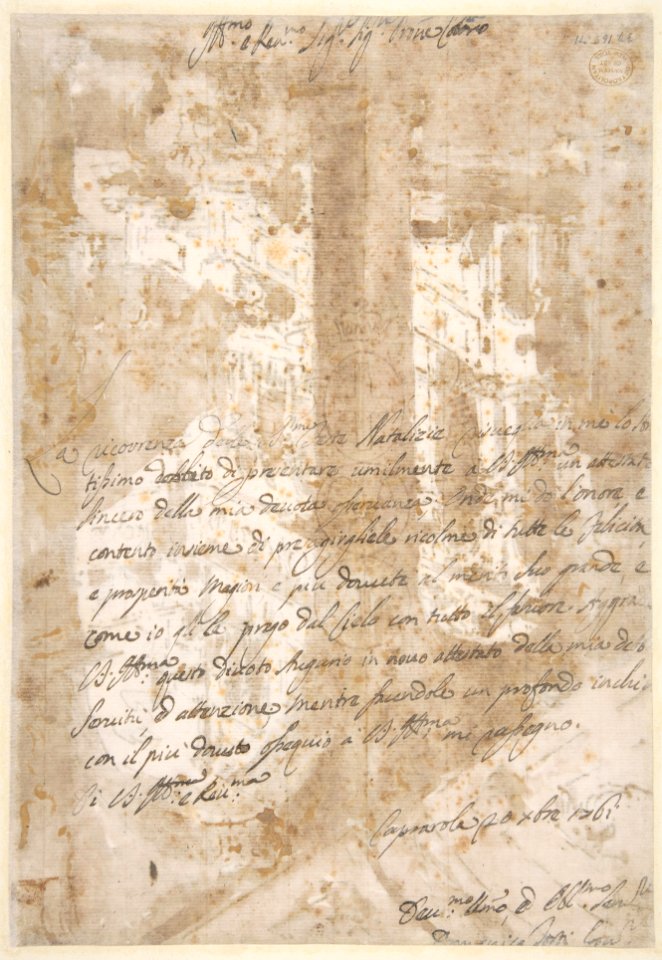 Ill.mo e Rev.mo Sig.re Sig.re Prōne Col.mo
37.165.71
La ricorrenza delle S.me Feste Natalizie risveglia in me lo st
tissimo debbito di presentare umilmente a V.S. Ill.ma un attestato
sincero della mia devota osservanza. Onde mi do l'onore e
contento insieme di preagirghiele ricolme di tutte le felicità,
e prosperità magiori e più dovute al merito suo grande, e
come io gli le prego dal Cielo con tutto il fervore.
V.S. Ill.ma questo divoto augurio in novo attestato della mia deb
servitù, ed attenzione, mentre facendole un profondo inchi
con il più dovuto ossequio a V.S. Ill.ma mi rassegno.
Di V.S. Ill.ma e Rev.ma
Caprarola 20 xbre 1761
Dev.mo Umo, ed Obl.mo Ser.re
Domenico